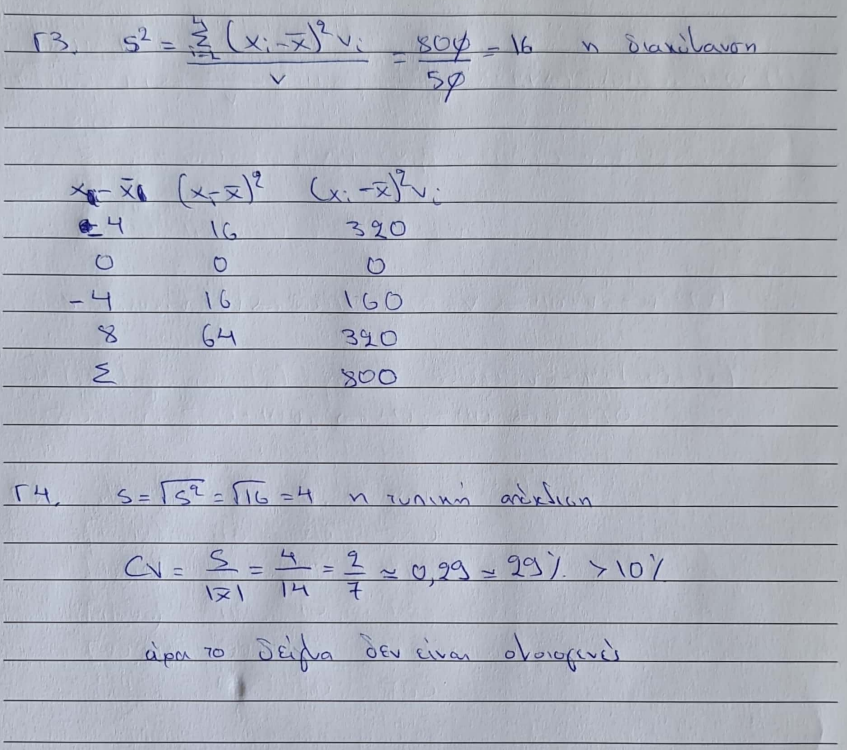 Γ3. s² = Σ⁴ᵢ₌₁ (xᵢ - x̄)² νᵢ / ν = 800/50 = 16 η διακύμανση
xᵢ - x̄ (xᵢ - x̄)² (xᵢ - x̄)² νᵢ
-4 16 320
0 0 0
-4 16 160
8 64 320
Σ 800
Γ4. s = √s² = √16 = 4 η τυπική απόκλιση
CV = s/|x̄| = 4/14 = 2/7 ≃ 0,29 = 29% > 10%
άρα το δείγμα δεν είναι ομοιογενές